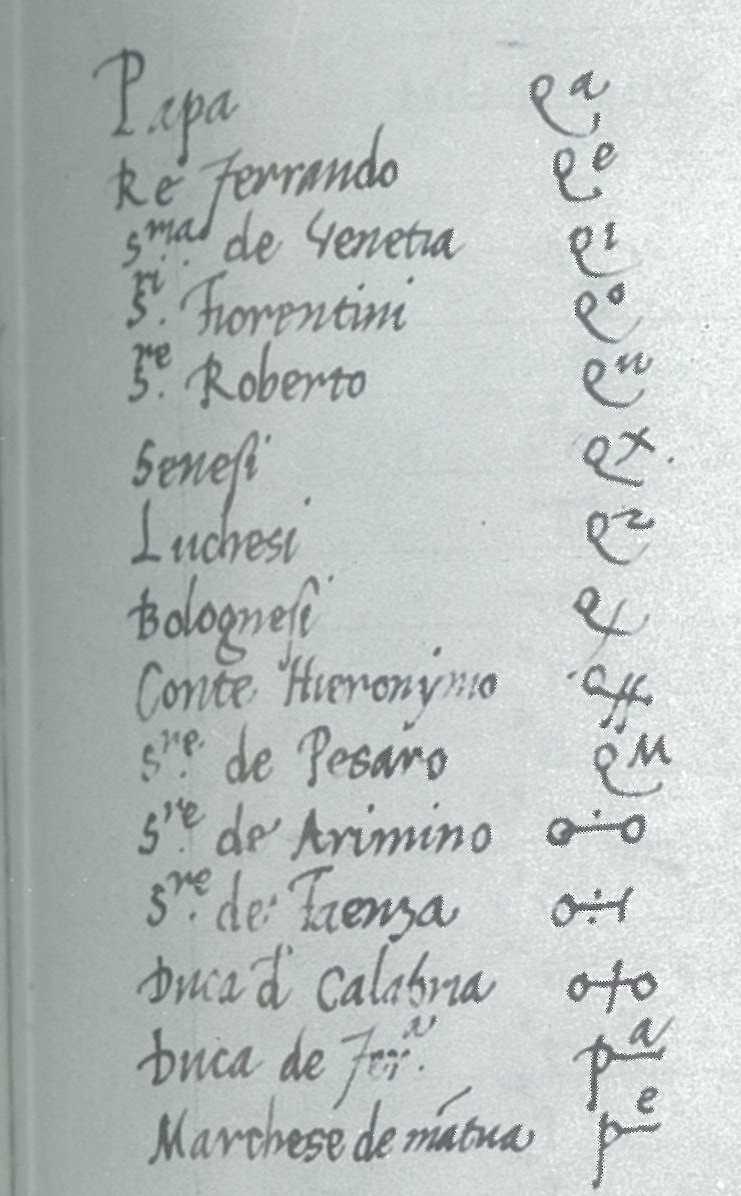 Papa
Re Ferrando
S.ma de Venetia
S.ri Fiorentini
S.re Roberto
Senesi
Luchesi
Bolognesi
Conte Hieronymo
S.re de Pesaro
S.re de Arimino
S.re de Faenza
Duca d' Calabria
Duca de Fer.a
Marchese de mātua